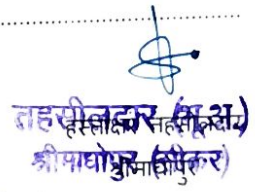 तहसीलदार (भू.अ.)
हस्ताक्षर तहसीलदार
श्रीमाधोपुर (सीकर)
श्रीमाधोपुर